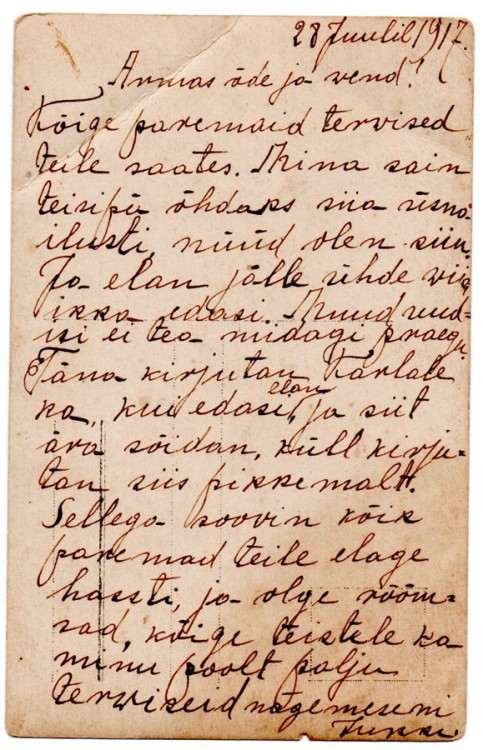 28 Juulil 1917.
Armas õde ja wend!
Kõige paremaid terwised
teile saates. Mina sain
teisipä õhdaks siia üsna
ilusti, nüüd olen siin.
Ja elan jälle ühde wiis
ikka edasi. Muud uud=
isi ei tea midagi praegu
Täna kirjutan Karlale
ka, kui edasi elan, ja siit
ära sõidan, küll kirju=
tan siis pikkemalt.
Sellega soovin kõik
paremad teile elage
hassti, ja olge rööm=
sad, kõige teistele ka
minu poolt palju
terwiseid nägemiseni